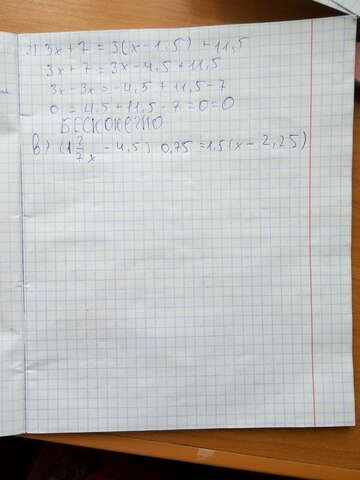 г) 3x + 7 = 3(x - 1,5) + 11,5
3x + 7 = 3x - 4,5 + 11,5
3x - 3x = -4,5 + 11,5 - 7
0 = 4,5 + 11,5 - 7 = 0 = 0
БЕСКОКЕЧНО
в) (1 2/7 x - 4,5) 0,75 = 1,5(x - 2,25)